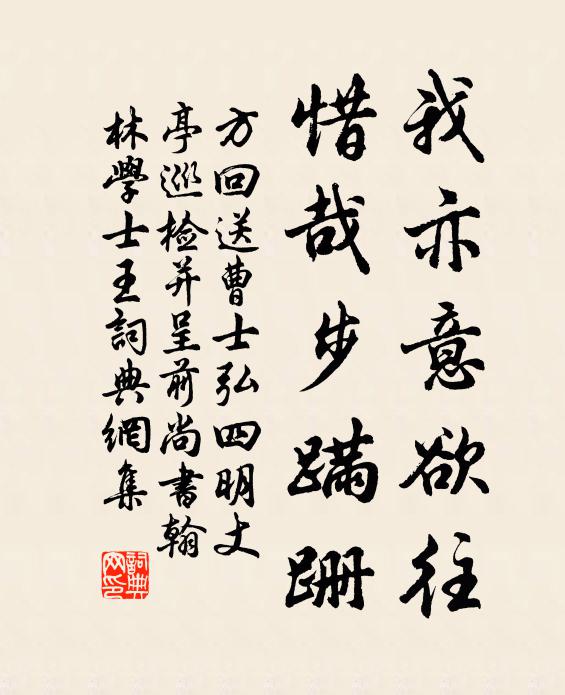 我亦意欲往
惜哉步蹒跚
方回送曹士弘四明丈
亭巡检并呈前尚書翰
林學士王詞典網集
詞典网印